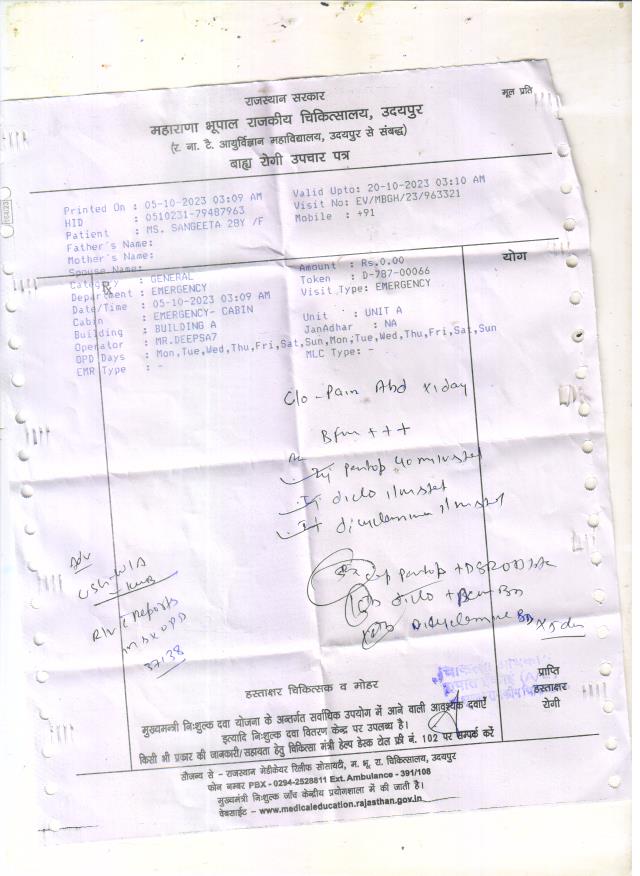 राजस्थान सरकार
मूल प्रति
महाराणा भूपाल राजकीय चिकित्सालय, उदयपुर
(र. ना. टै. आयुर्विज्ञान महाविद्यालय, उदयपुर से संबद्ध)
बाह्य रोगी उपचार पत्र
Printed On : 05-10-2023 03:09 AM Valid Upto: 20-10-2023 03:10 AM
HID : 0510231-79487963 Visit No: EV/MBGH/23/963321
Patient : MS. SANGEETA 28Y /F Mobile : +91
Father's Name:
Mother's Name:
Spouse Name:
योग
Category : GENERAL Amount : Rs.0.00
Department : EMERGENCY Token : D-787-00066
Date/Time : 05-10-2023 03:09 AM Visit Type: EMERGENCY
Cabin : EMERGENCY- CABIN Unit : UNIT A
Building : BUILDING A JanAdhar : NA
Operator : MR.DEEPSA7
OPD Days : Mon,Tue,Wed,Thu,Fri,Sat,Sun,Mon,Tue,Wed,Thu,Fri,Sat,Sun
EMR Type : - MLC Type: -
C/o - Pain Abd x1day
+++
pantop 40
diclo
Adv
pantop + DSR OD
diclo +
Dicyclomine BD x5d
R/w c Reports
OPD
37138
हस्ताक्षर चिकित्सक व मोहर
प्राप्ति
हस्ताक्षर
रोगी
मुख्यमन्त्री निःशुल्क दवा योजना के अन्तर्गत सर्वाधिक उपयोग में आने वाली आवश्यक दवाऐं
इत्यादि निःशुल्क दवा वितरण केन्द्र पर उपलब्ध है।
किसी भी प्रकार की जानकारी/सहायता हेतु चिकित्सा मंत्री हेल्प डेस्क टोल फ्री नं. 102 पर सम्पर्क करें
सौजन्य से - राजस्थान मेडीकेयर रिलीफ सोसायटी, म. भू. रा. चिकित्सालय, उदयपुर
फोन नम्बर PBX - 0294-2528811 Ext. Ambulance - 391/108
मुख्यमन्त्री निःशुल्क जाँच केन्द्रीय प्रयोगशाला में की जाती है।
वेबसाईट - www.medicaleducation.rajasthan.gov.in